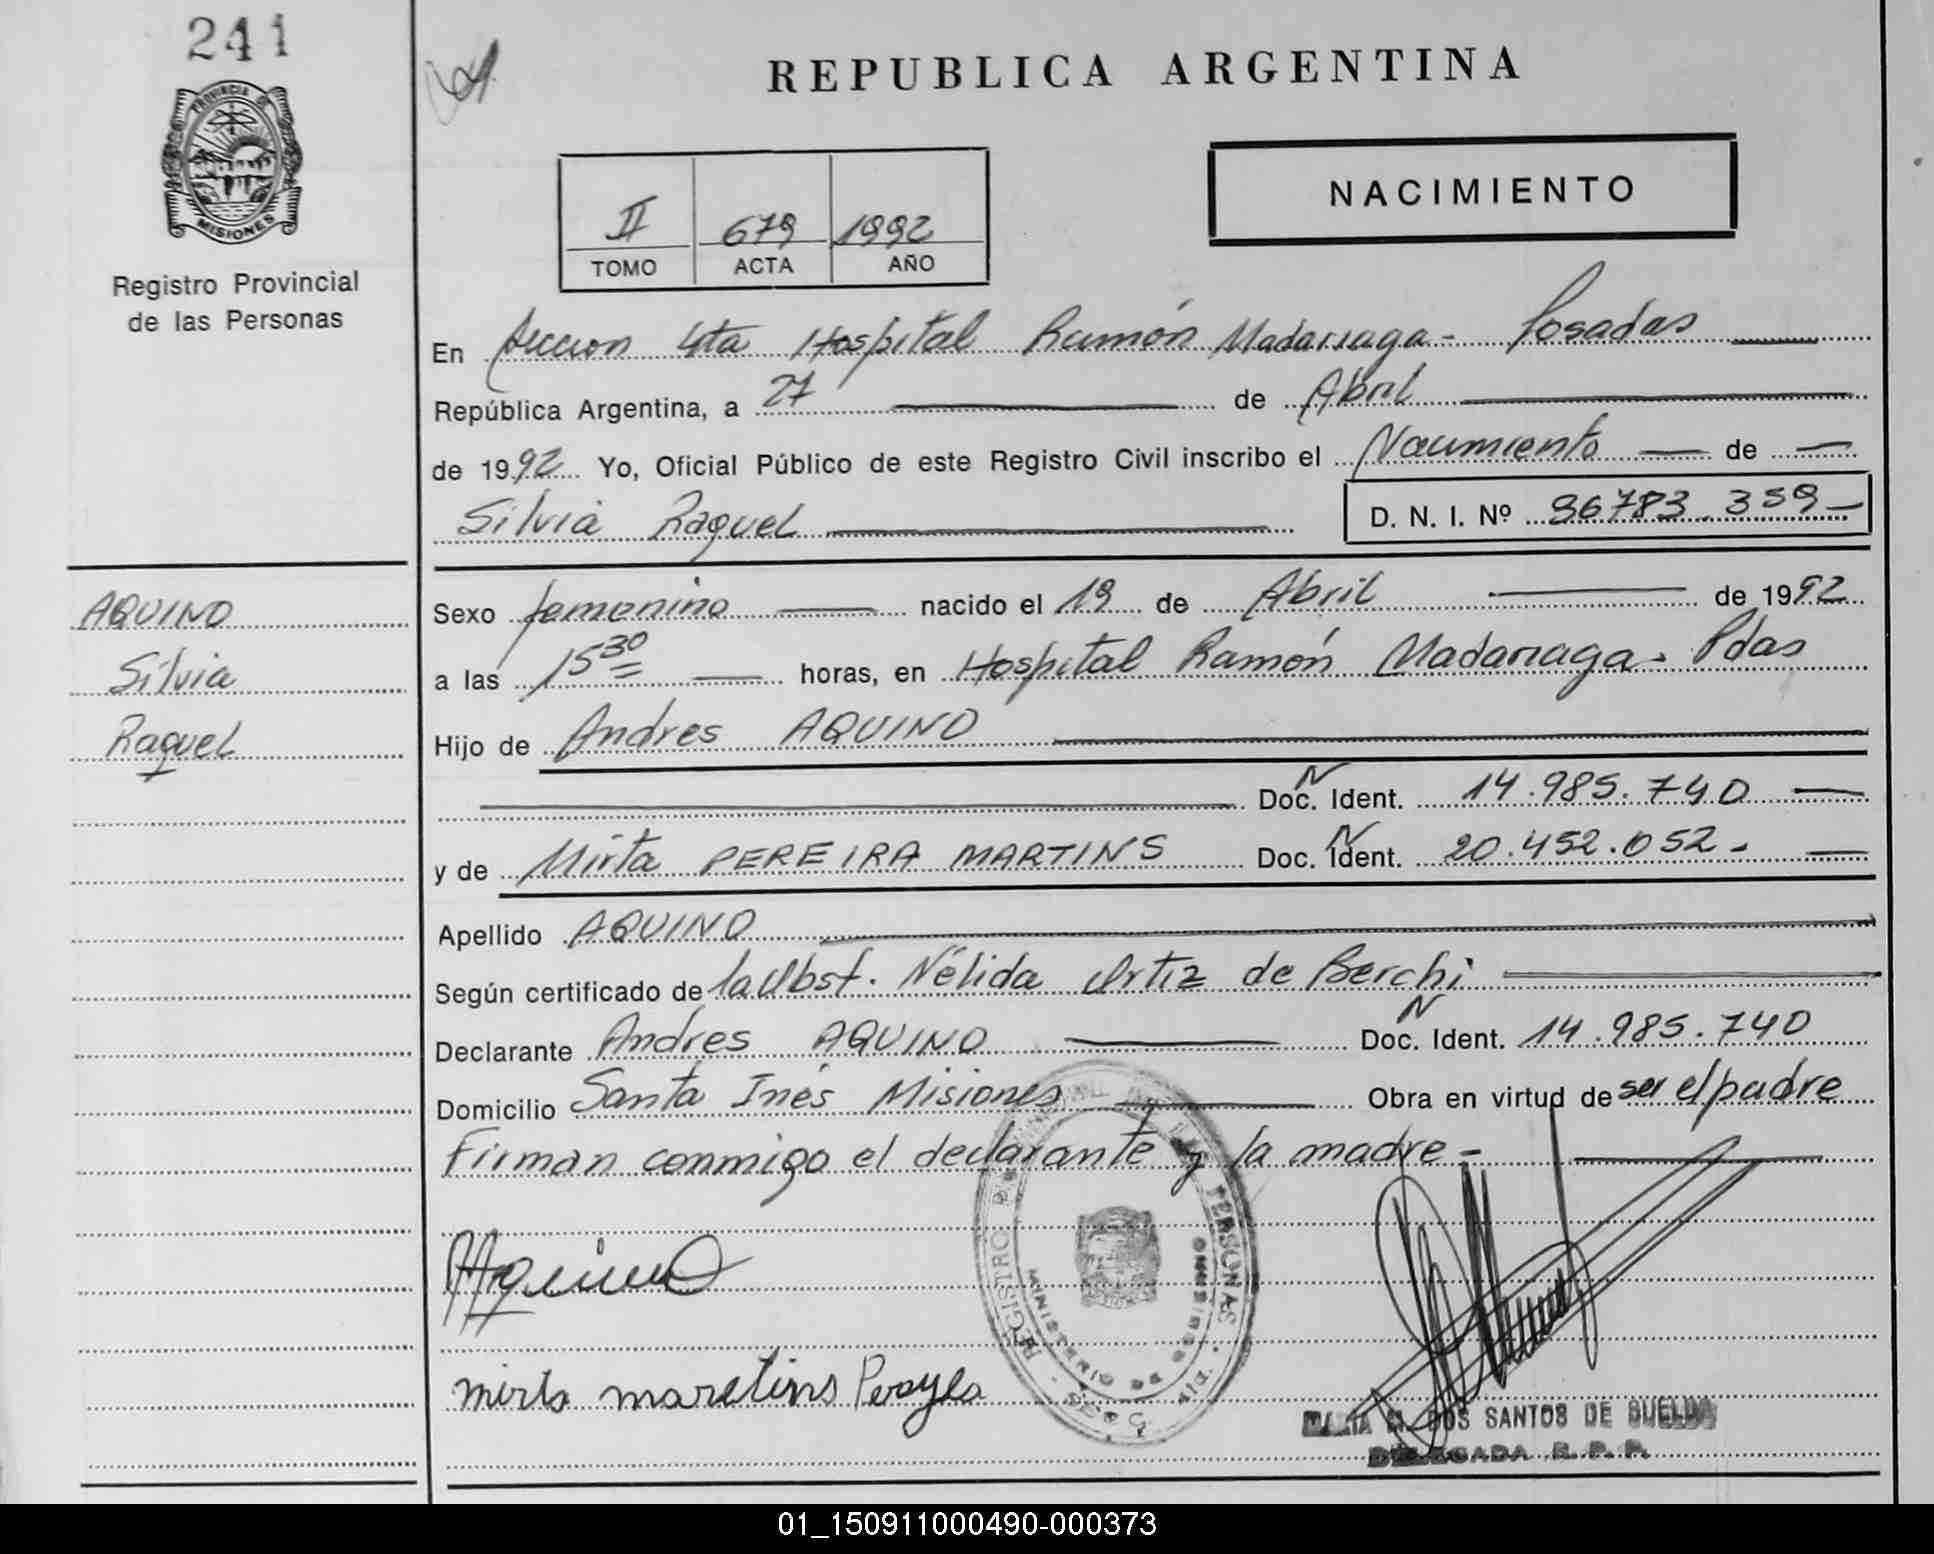 241
REPUBLICA ARGENTINA
PROVINCIA DE
MISIONES
Registro Provincial
de las Personas
II 679 1992
TOMO ACTA AÑO
NACIMIENTO
En Sección 4ta Hospital Ramón Madariaga - Posadas
República Argentina, a 27 de Abril
de 1992 Yo, Oficial Público de este Registro Civil inscribo el Nacimiento de
Silvia Raquel
D. N. I. Nº 36783.359
AQUINO
Silvia
Raquel
Sexo femenino nacido el 19 de Abril de 1992
a las 15 30 horas, en Hospital Ramón Madariaga - Pdas
Hijo de Andres AQUINO
Doc. N Ident. 14.985.740
y de Mirta PEREIRA MARTINS Doc. N Ident. 20.452.052.
Apellido AQUINO
Según certificado de la Obst. Nélida Ortiz de Berchi
Declarante Andres AQUINO Doc. N Ident. 14.985.740
Domicilio Santa Inés Misiones Obra en virtud de ser el padre
Firman conmigo el declarante y la madre -
REGISTRO PERSONAS
MINISTERIO DE
MISIONES
Aquino
mirta maretins
MARIA DOS SANTOS DE
DELEGADA R. P. P.
01_150911000490-000373